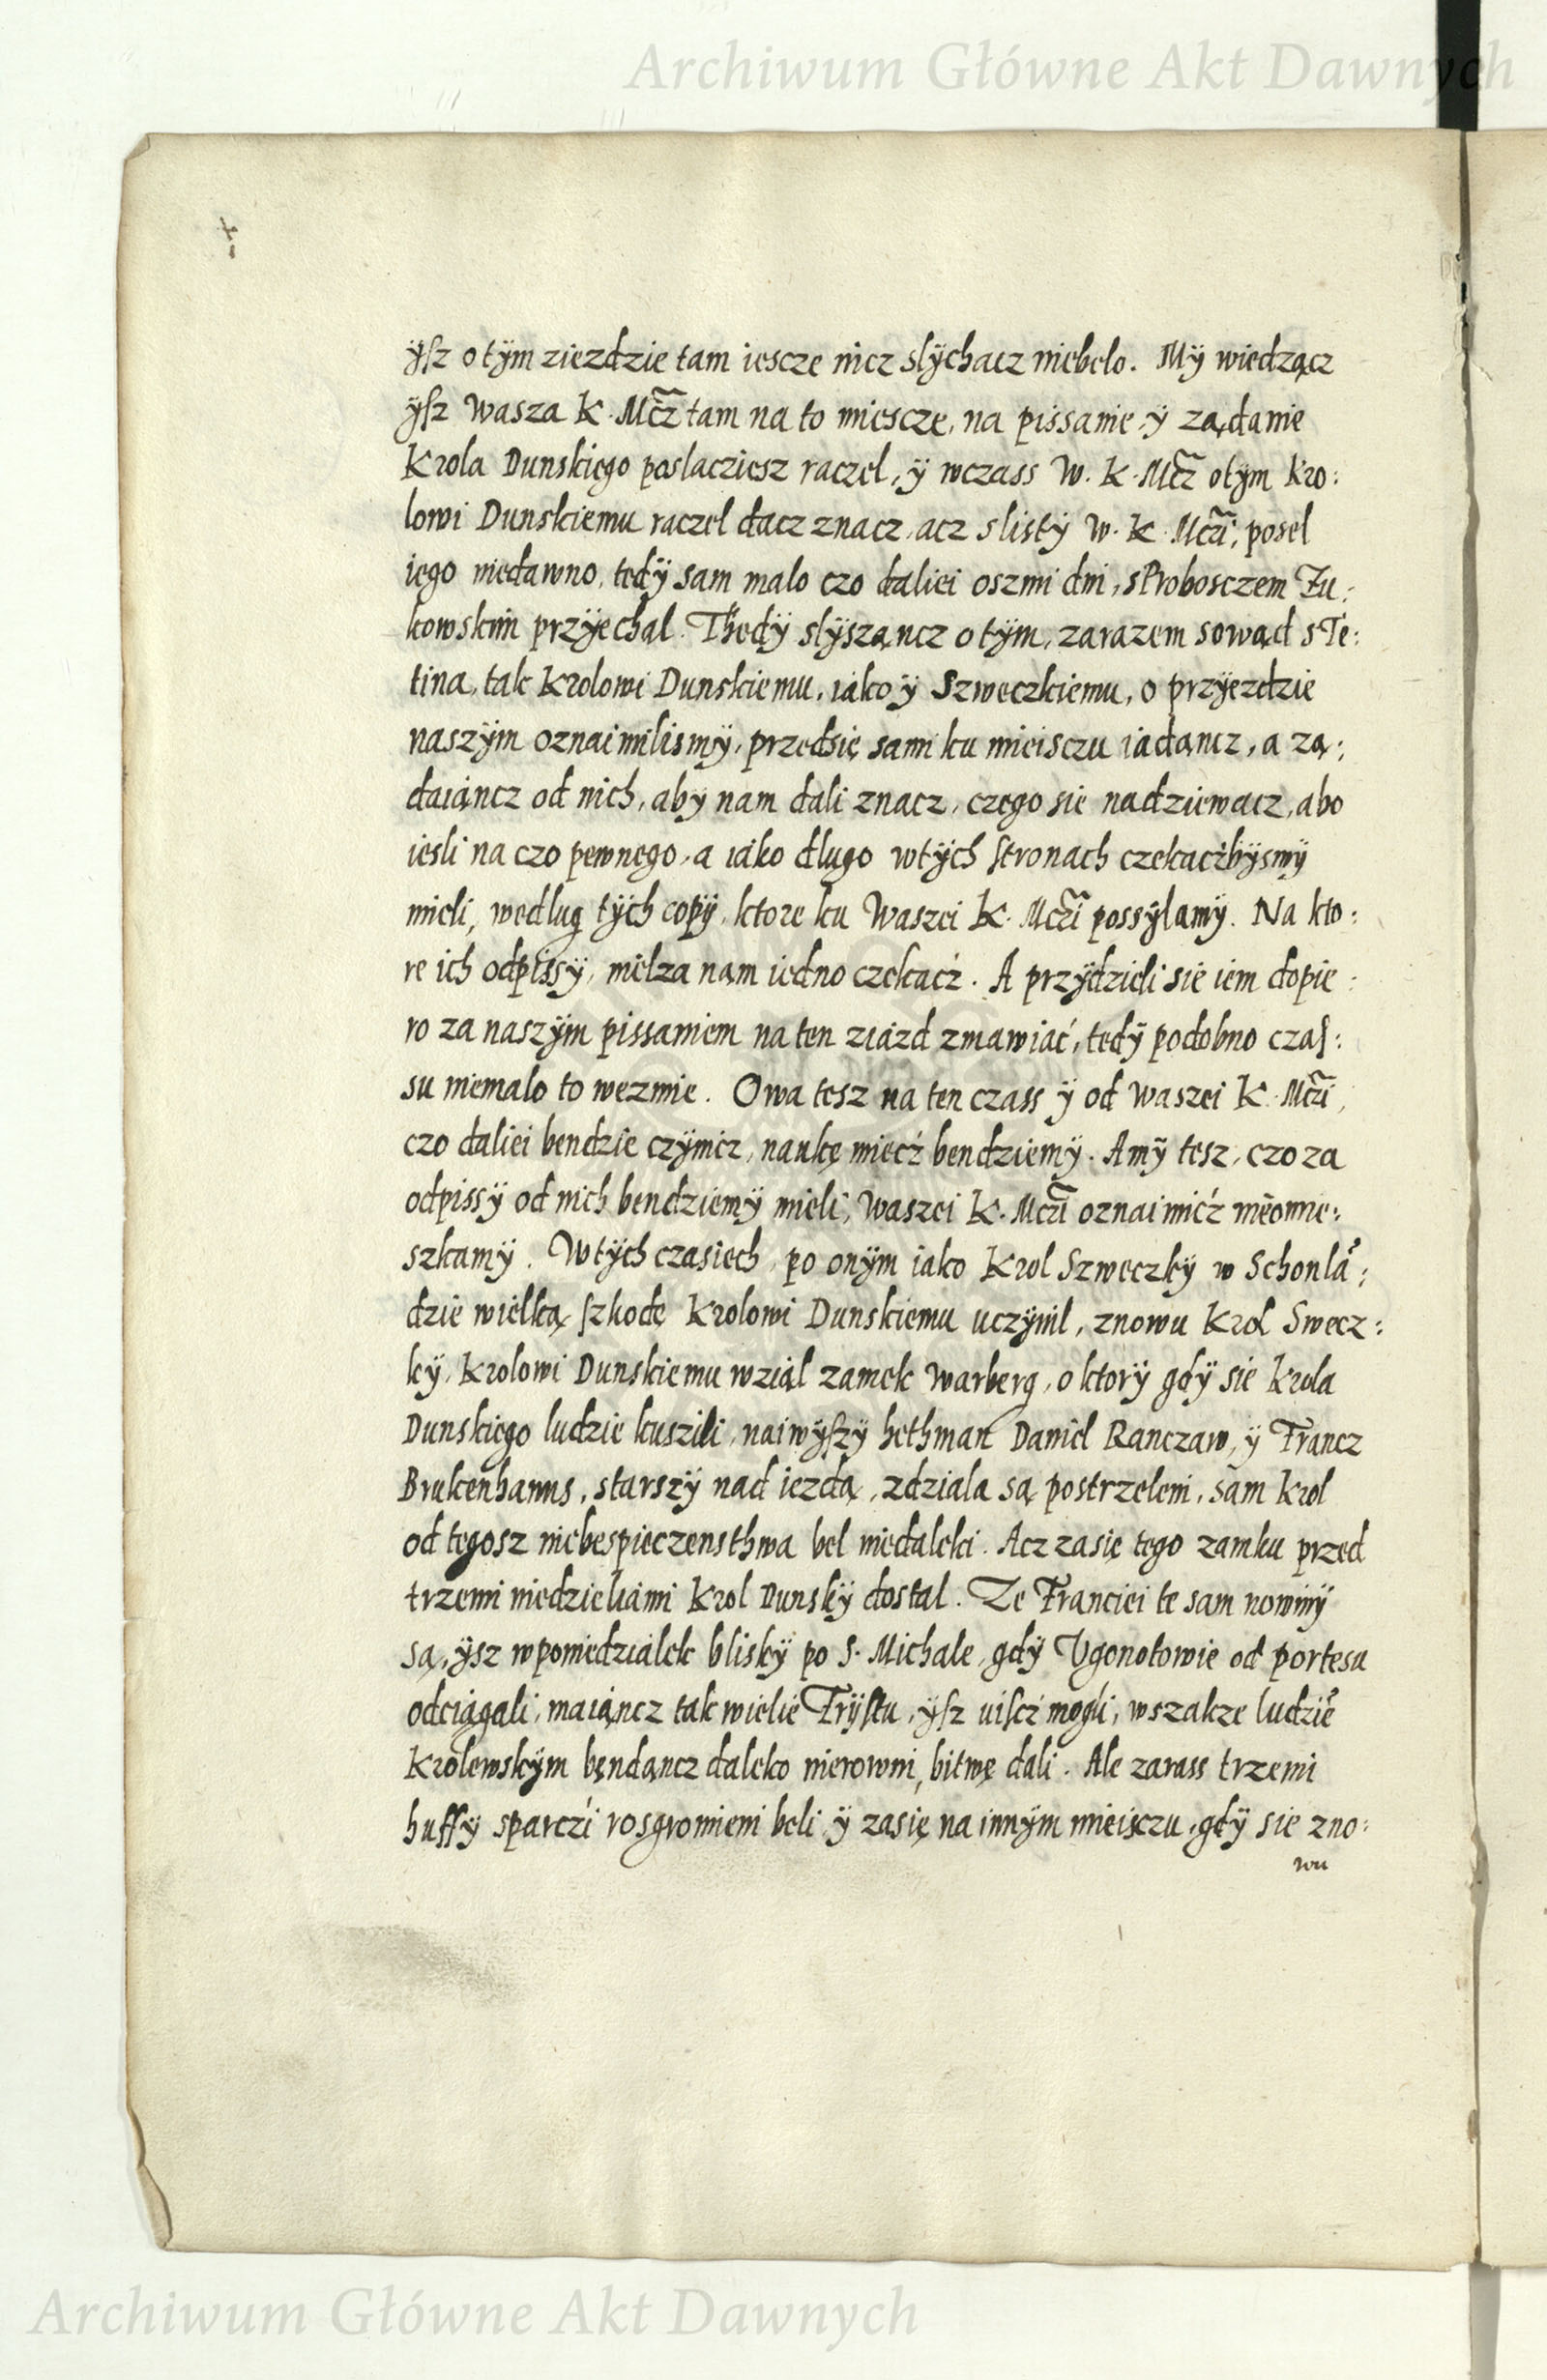 Archiwum Główne Akt Dawnych
ÿsz o tÿm ziezdzie tam iescze nicz slÿchacz niebelo. Mÿ wiedzącz
ÿsz Wasza K. Mcz tam na to miescze, na pissanie ÿ ządanie
Krola Dunskiego poslacziesz raczel, ÿ wczass W. K. Mcz otÿm Kro:
lowi Dunskiemu raczel dacz znacz, acz slistÿ W. K. Mczi, posel
iego niedawno, tedÿ sam malo czo daliei oszmi dni, sProbosczem Zu:
kowskim przÿechal. Thedÿ slÿsząncz o tÿm, zarazem sowąd sTe:
tina, tak Krolowi Dunskiemu, iako ÿ Szweczkiemu, o przÿezdzie
naszÿm oznaimilismÿ, przedsię sami ku mieisczu iadąncz, a zą:
daiąncz od nich, abÿ nam dali znacz, czego sie nadziewacz, abo
iesli na czo pewnego, a iako dlugo wtÿch stronach czekaczbÿsmÿ
mieli, wedlug tÿch copÿ, ktore ku Waszei K. Mczi possÿlamÿ. Na kto:
re ich odpissÿ, mielza nam iedno czekać. A przÿdzieli sie iem dopie:
ro za naszÿm pissaniem na ten ziazd zmawiać, tedÿ podobno czas:
su niemalo to wezmie. Owa tesz na ten czass ÿ od Waszei K. Mczi,
czo daliei bendzie czÿnicz, naukę miecź bendziemÿ. Amÿ tesz, czo za
odpissÿ od nich bendziemÿ mieli, Waszei K. Mczi oznaimićz nieomie:
szkamÿ. Wtÿch czasiech, po onÿm iako Krol Szweczkÿ w Schonlā:
dzie wielką szkodę Krolowi Dunskiemu uczÿnil, znowu Krol Swecz:
kÿ, Krolowi Dunskiemu wziąl zamek Warberg, o ktorÿ gdÿ sie krola
Dunskiego ludzie kuszili, naiwÿszÿ hethman Daniel Ranczaw, ÿ Francz
Brukenhanns, starszÿ nad iezdą, zdziala są postrzeleni, sam krol
od tegosz niebespieczensthwa bel niedaleki. Acz zasię tego zamku przed
trzemi niedzieliami Krol Dunskÿ dostal. Ze Franciei te sam nowinÿ
są, ÿsz wponiedzialek bliskÿ po S. Michale, gdÿ Vgonotowie od portesu
odciągali, maiąncz tak wielie Frÿstu, ÿsz uiscź mogli, wszakze ludzie
Krolewskÿm będąncz daleko nierowni, bitwę dali. Ale zarass trzemi
huffÿ sparczi rosgromieni beli ÿ zasię na innÿm mieisczu, gdÿ sie zno:
wu
Archiwum Główne Akt Dawnych